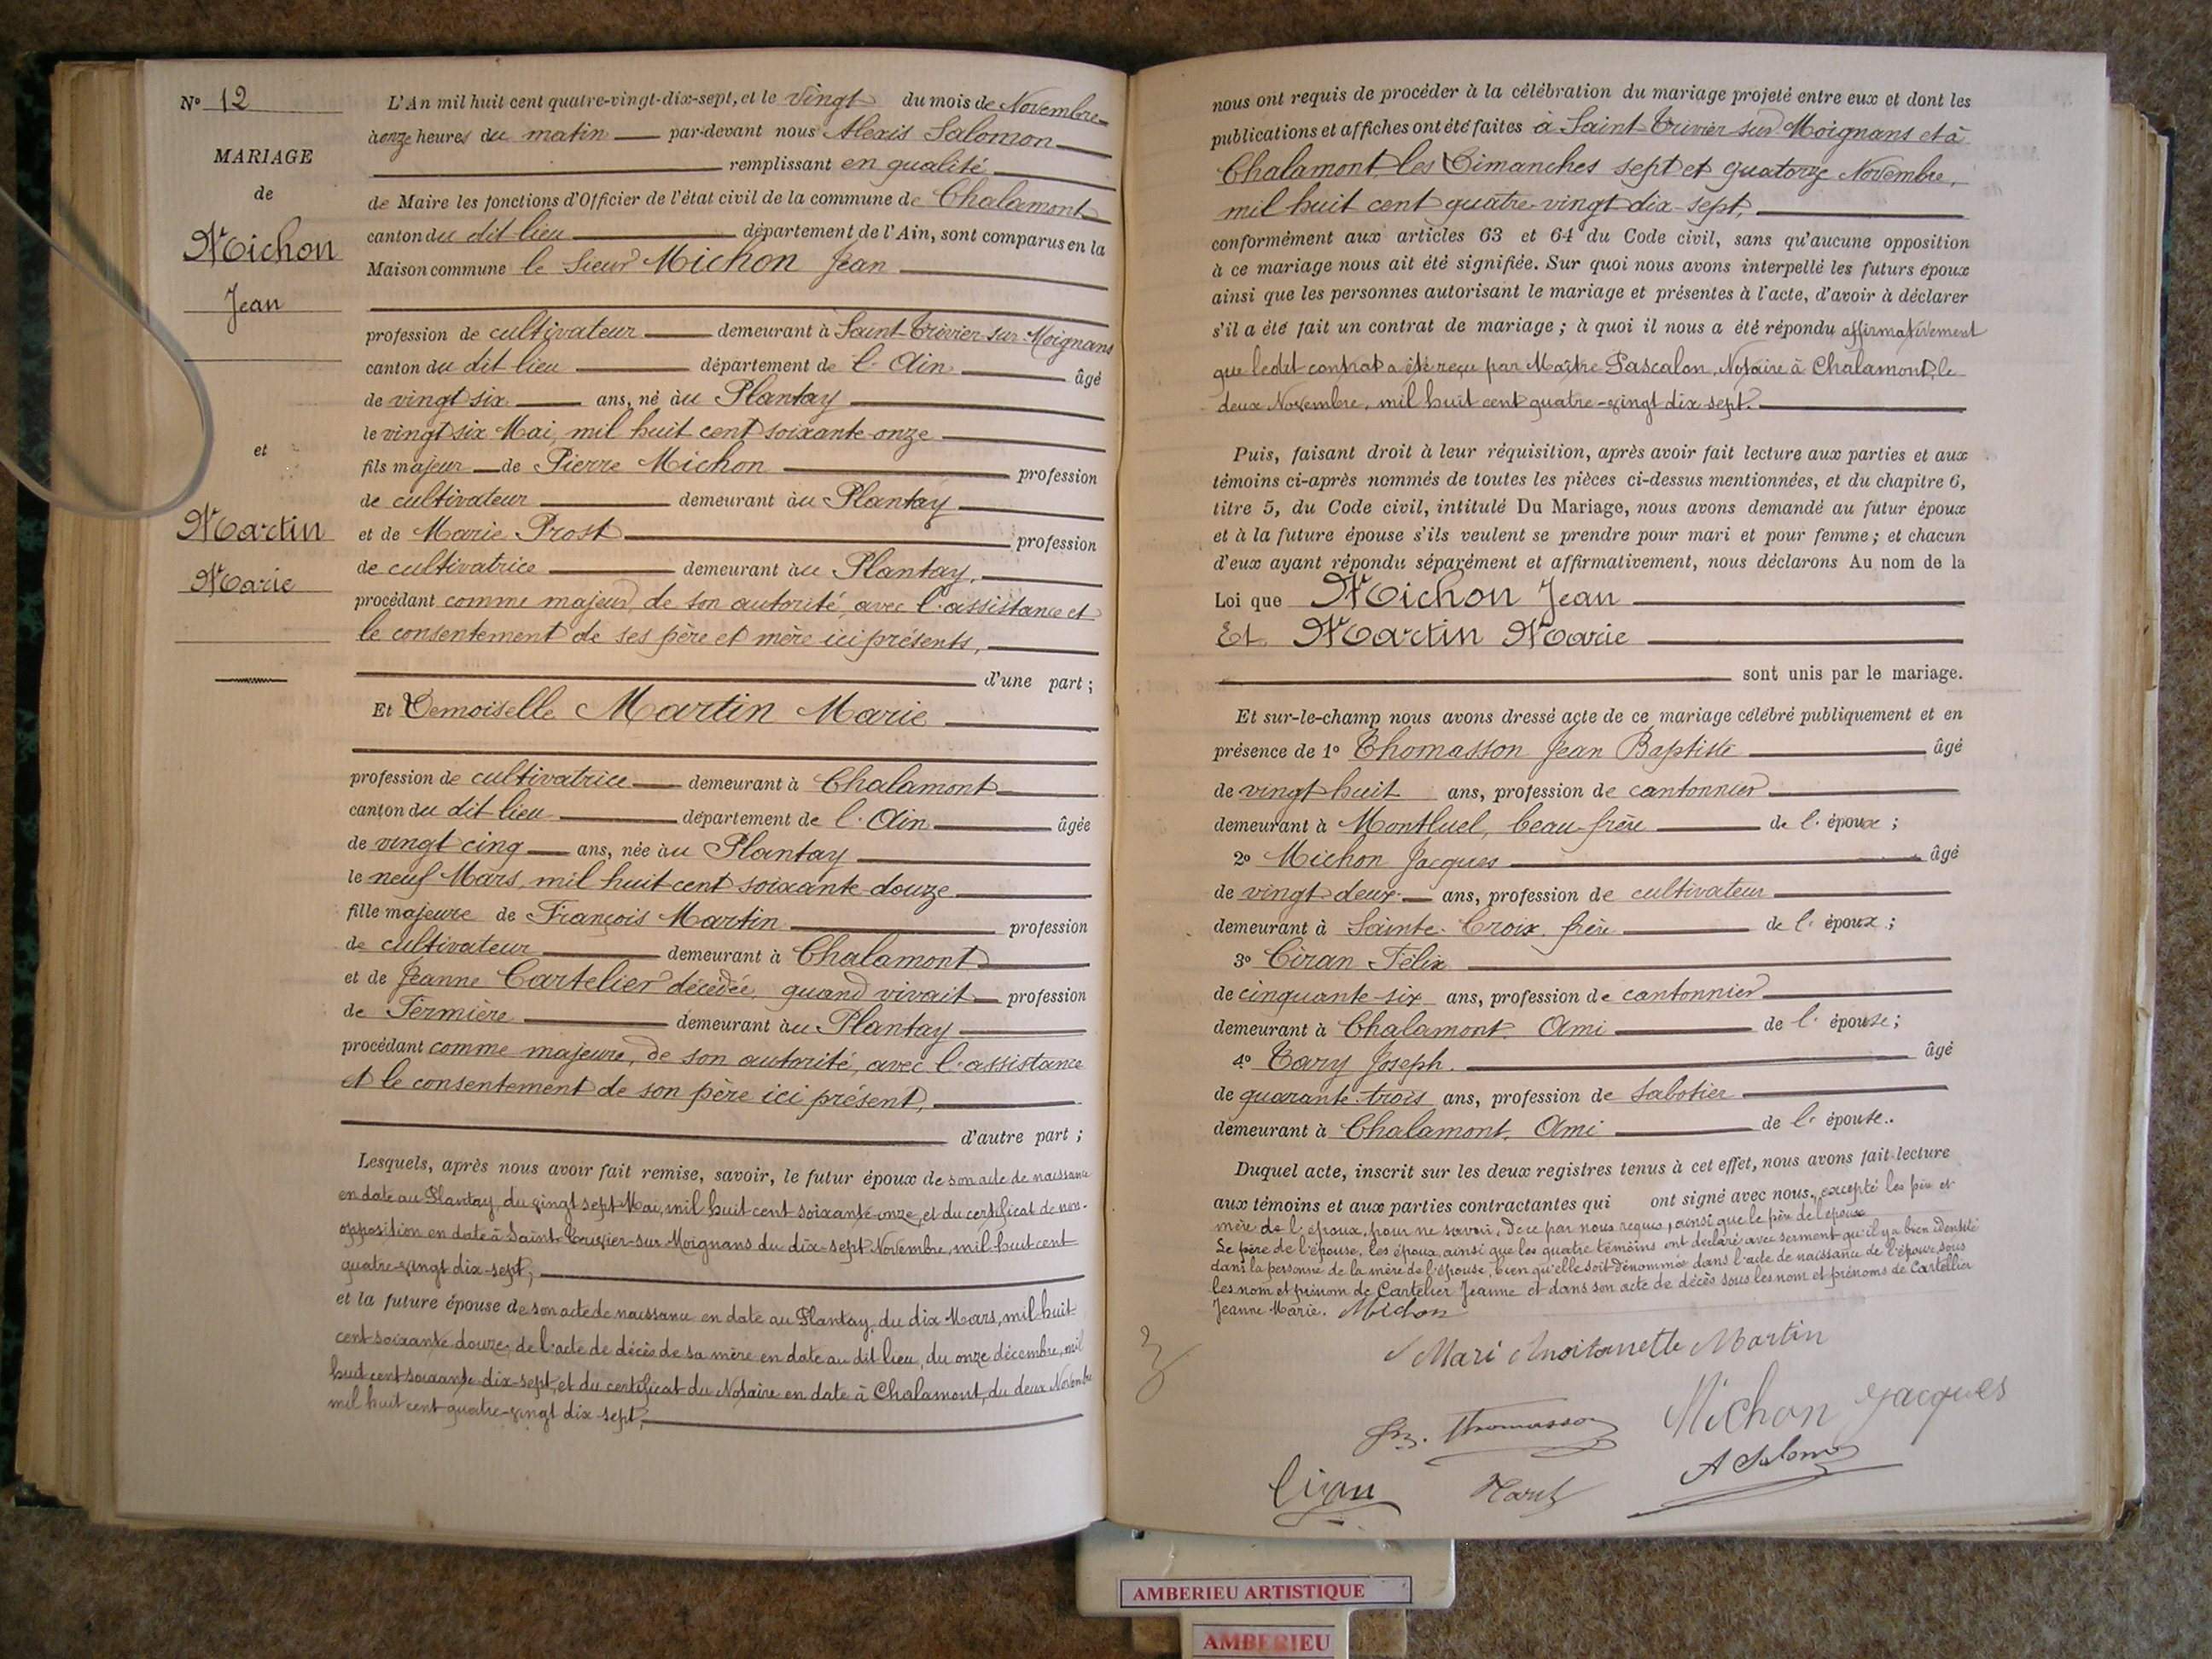 N° 12
MARIAGE
de
Michon
Jean
et
Martin
Marie
L'An mil huit cent quatre-vingt-dix-sept, et le vingt du mois de Novembre
à onze heures du matin par-devant nous Alexis Salomon
remplissant en qualité
de Maire les fonctions d'Officier de l'état civil de la commune de Chalamont
canton du dit lieu département de l'Ain, sont comparus en la
Maison commune le Sieur Michon Jean
profession de cultivateur demeurant à Saint-Trivier-sur-Moignans
canton du dit lieu département de l'Ain âgé
de vingt six ans, né au Plantay
le vingt six Mai, mil huit cent soixante-onze
fils majeur de Pierre Michon profession
de cultivateur demeurant au Plantay
et de Marie Prost profession
de cultivatrice demeurant au Plantay,
procédant comme majeur, de son autorité, avec l'assistance et
le consentement de ses père et mère ici présents,
d'une part ;
Et Demoiselle Martin Marie
profession de cultivatrice demeurant à Chalamont
canton du dit lieu département de l'Ain âgée
de vingt cinq ans, née au Plantay
le neuf Mars, mil huit cent soixante douze
fille majeure de François Martin profession
de cultivateur demeurant à Chalamont
et de Jeanne Cartelier décédée, quand vivait profession
de Fermière demeurant au Plantay
procédant comme majeure, de son autorité, avec l'assistance
et le consentement de son père ici présent,
d'autre part ;
Lesquels, après nous avoir fait remise, savoir, le futur époux de son acte de naissance
en date au Plantay, du vingt sept Mai, mil huit cent soixante-onze, et du certificat de non-
opposition en date à Saint-Trivier-sur-Moignans du dix-sept Novembre, mil huit cent
quatre-vingt dix-sept;
et la future épouse de son acte de naissance en date au Plantay, du dix Mars, mil huit
cent soixante douze; de l'acte de décès de sa mère en date au dit lieu, du onze décembre, mil
huit cent soixante dix-sept, et du certificat du Notaire en date à Chalamont, du deux Novembre
mil huit cent quatre-vingt dix-sept,
nous ont requis de procéder à la célébration du mariage projeté entre eux et dont les
publications et affiches ont été faites à Saint-Trivier sur Moignans et à
Chalamont, les Dimanches sept et quatorze Novembre,
mil huit cent quatre-vingt dix-sept,
conformément aux articles 63 et 64 du Code civil, sans qu'aucune opposition
à ce mariage nous ait été signifiée. Sur quoi nous avons interpellé les futurs époux
ainsi que les personnes autorisant le mariage et présentes à l'acte, d'avoir à déclarer
s'il a été fait un contrat de mariage ; à quoi il nous a été répondu affirmativement
que ledit contrat a été reçu par Maître Pascalon, Notaire à Chalamont, le
deux Novembre, mil huit cent quatre-vingt dix sept.
Puis, faisant droit à leur réquisition, après avoir fait lecture aux parties et aux
témoins ci-après nommés de toutes les pièces ci-dessus mentionnées, et du chapitre 6,
titre 5, du Code civil, intitulé Du Mariage, nous avons demandé au futur époux
et à la future épouse s'ils veulent se prendre pour mari et pour femme ; et chacun
d'eux ayant répondu séparément et affirmativement, nous déclarons Au nom de la
Loi que Michon Jean
Et Martin Marie
sont unis par le mariage.
Et sur-le-champ nous avons dressé acte de ce mariage célébré publiquement et en
présence de 1° Thomasson Jean Baptiste âgé
de vingt huit ans, profession de cantonnier
demeurant à Montluel, beau-frère de l'époux ;
2° Michon Jacques âgé
de vingt deux ans, profession de cultivateur
demeurant à Sainte-Croix, frère de l'époux ;
3° Ciran Félix
de cinquante-six ans, profession de cantonnier
demeurant à Chalamont, Ami de l'épouse ;
4° Tary Joseph. âgé
de quarante-trois ans, profession de sabotier
demeurant à Chalamont, Ami de l'épouse.
Duquel acte, inscrit sur les deux registres tenus à cet effet, nous avons fait lecture
aux témoins et aux parties contractantes qui ont signé avec nous, excepté les père et
mère de l'époux, pour ne savoir, de ce par nous requis, ainsi que le père de l'épouse
Le père de l'épouse, les époux, ainsi que les quatre témoins ont déclaré avec serment qu'il y a bien identité
dans la personne de la mère de l'épouse, bien qu'elle soit dénommée dans l'acte de naissance de l'épouse, sous
les nom et prénom de Cartelier Jeanne et dans son acte de décès sous les nom et prénoms de Cartellier
Jeanne Marie. Michon
Mari Antoinette Martin
Michon Jacques
Thomasson
A Salomon
Ciran
AMBERIEU ARTISTIQUE
AMBERIEU